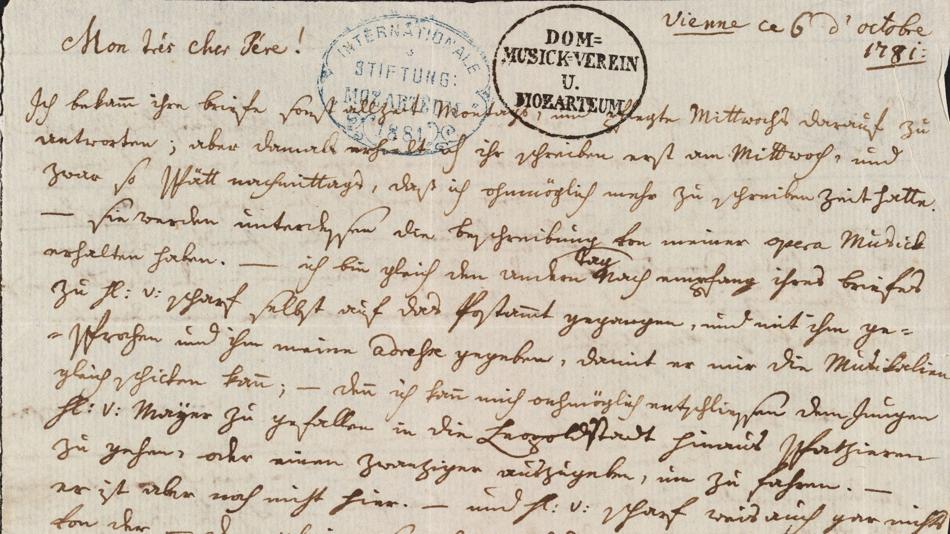 Vienne ce 6 d'octobre
1781:
Mon trés cher Pére!
INTERNATIONALE
STIFTUNG:
MOZARTEUM
1881
DOM=
MUSICK-VEREIN
U.
MOZARTEUM
Ich bekamm ihre briefe sonst allzeit Montags, und pflegte Mittwochs darauf zu
antworten; aber damals erhielt ich ihr schreiben erst am Mittwoch, und
zwar so spätt nachmittags, daß ich ohnmöglich mehr zu schreiben zeit hatte.
— sie werden unterdessen die beschreibung von meiner opera Musick
erhalten haben. — ich bin gleich den andern Tag nach empfang ihres briefes
zu H: v: scharf selbst auf das Postammt gegangen, und mit ihm ge=
=sprochen und ihm meine adreße gegeben, damit er mir die Musikalien
gleich schicken kann; — denn ich kann mich ohnmöglich entschliessen dem Jungen
H: v: Mayer zu gefallen in die Leopoldstadt hinaus spatzieren
zu gehen, oder einen zwanziger auszugeben, um zu fahren. —
er ist aber noch nicht hier. — und H: v: scharf weis auch gar nichts
von der